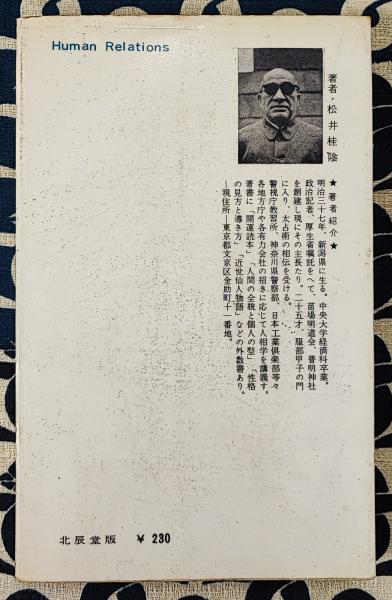 Human Relations
著者・松井桂陰
★ 著者紹介 ★
明治三十七年、新潟県に生る。中央大学経済科卒業。
政治記者、厚生省嘱託をへて、苗場明道会、普明神社
を創建し現にその主長たり。二十五才、服部甲子の門
に入り、太占術の相伝を受ける。
警視庁教習所、神奈川県警察部、日本工業倶楽部等々
各地方庁や各有力会社の招きに応じて人相学を講義す。
著書に「開運読本」「人間の全貌と個人の型」「性格
の見方と導き方」「近世仙人物語」などの外数書あり。
―現住所―東京都文京区金助町十一番地。
北辰堂版 ¥ 230